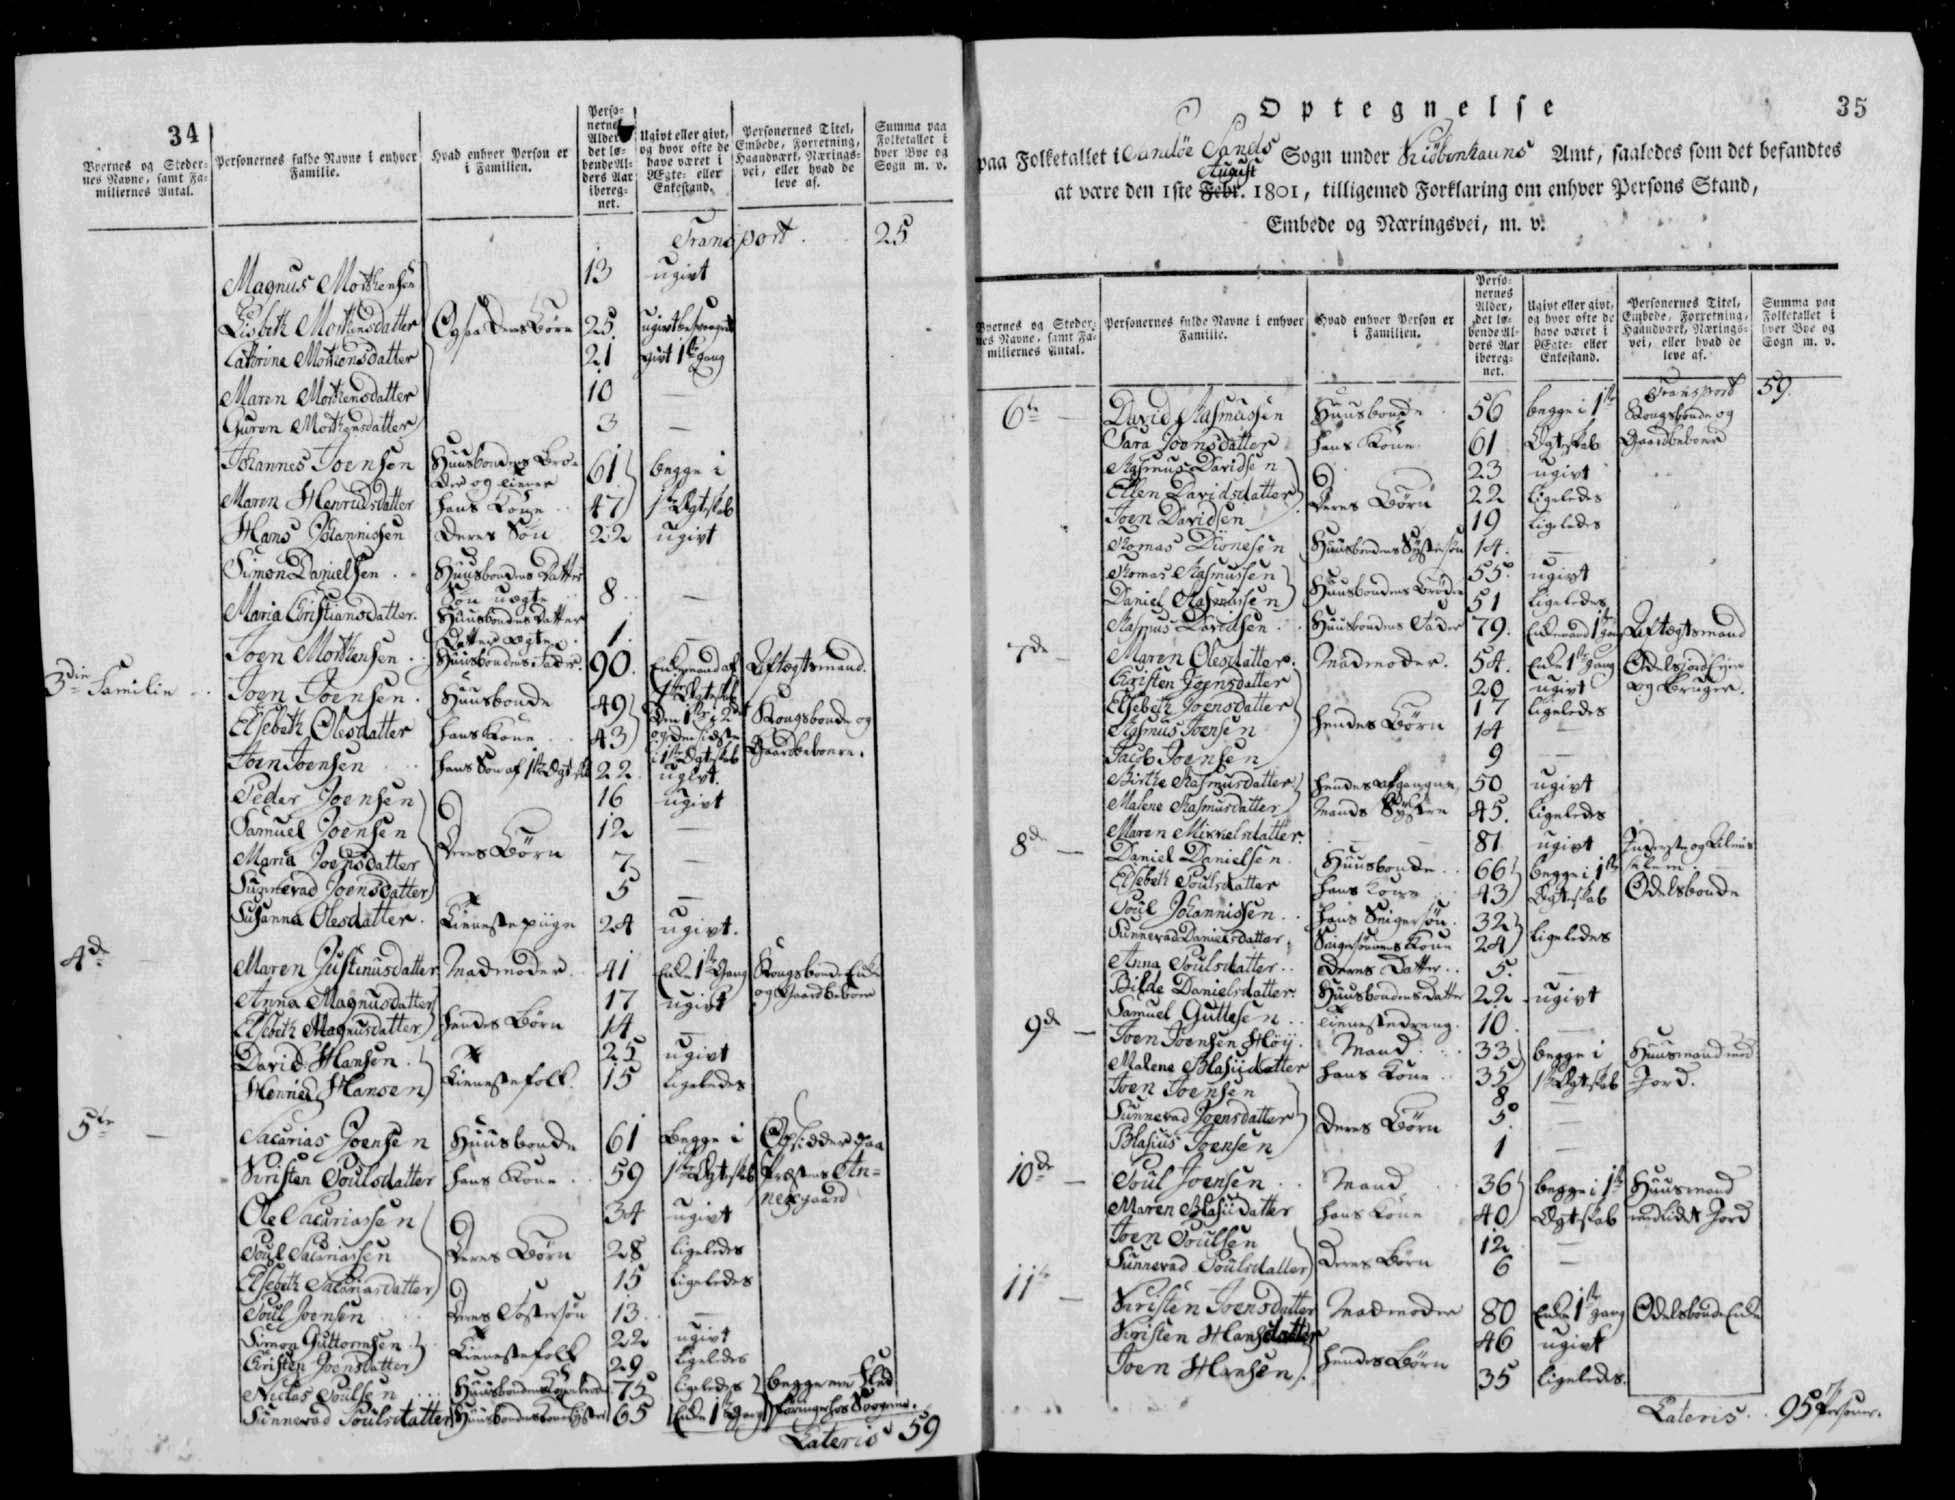 34
Byernes og Steder-
nes Navne, samt Fa-
miliernes Antal.
Personernes fulde Navne i enhver
Familie.
Hvad enhver Person er
i Familien.
Perso-
nernes
Alder,
det lø-
bende Al-
ders Aar
ibereg-
net.
Ugivt eller givt,
og hvor ofte de
have været i
Ægte- eller
Enkestand.
Personernes Titel,
Embede, Forretning,
Haandværk, Nærings-
vei, eller hvad de
leve af.
Summa paa
Folketallet i
hver Bye og
Sogn m. v.
Transport . 25
Magnus Morthensen 13 ugivt
Lisbeth Morthensdatter Ogsaa deres Børn 25 ugivt
Cathrine Morthensdatter 21 givt 1ste gang
Maren Morthensdatter 10 —
Guren Morthensdatter 3 —
Johannes Joensen Huusbondens Bro- 61 begge i
der og tiener
Maren Henrichsdatter hans Kone 47 1ste Ægteskab
Hans Johannissen Deres Søn 22 ugivt
Simon Danielsen Huusbondens Datter
Søn uægte 8 —
Maria Christiansdatter Huusbondens Datter
Datter ægte 1 —
Joen Morthensen Huusbondens Fader 90 Enkemand af Aftægtsmand
1ste Ægteskab
3die Familie Joen Joensen Huusbonde 49 Den 1ste i 2det Kongsbonde og
Elsebeth Olesdatter hans Kone 43 og den sidste Gaardbeboere.
i 1ste Ægteskab
Joen Joensen hans Søn af 1ste Ægteskab 22 ugivt.
Peder Joensen 16 ugivt
Samuel Joensen Deres Børn 12 —
Maria Joensdatter 7 —
Sunnevad Joensdatter 5 —
Susanna Olesdatter Tienestepiige 24 ugivt.
4de — Maren Justinusdatter Madmoder 41 Enke 1ste Gang Kongsbonde Enke
og Gaardbeboer
Anna Magnusdatter hendes Børn 17 ugivt
Elsebeth Magnusdatter 14 —
David Hansen Tienestefolk 25 ugivt
Henrich Hansen 15 ligeledes
5te — Sacarias Joensen Huusbonde 61 begge i Opsidder paa
Kristen Poulsdatter hans Kone 59 1ste Ægteskab Præstens An-
nexgaard
Ole Sacariassen 34 ugivt
Poul Sacariassen Deres Børn 28 ligeledes
Elsebeth Sacariasdatter 15 ligeledes
Poul Joensen Deres Fostersøn 13 —
Simon Guttormsen Tienestefolk 22 ugivt
Christen Joensdatter 29 ligeledes
Niclas Poulsen Huusbondens Konebroder 75 ligeledes begge ere Fled
Sunnevad Poulsdatter Huusbondens Konesyster 65 Enke 1ste Gang føringer hos Svogeren.
Lateris 59
35
Optegnelse
paa Folketallet i Sandøe Sands Sogn under Kiøbenhauns Amt, saaledes som det befandtes
August
at være den 1ste Febr. 1801, tilligemed Forklaring om enhver Persons Stand,
Embede og Næringsvei, m. v.
Byernes og Steder-
nes Navne, samt Fa-
miliernes Antal.
Personernes fulde Navne i enhver
Familie.
Hvad enhver Person er
i Familien.
Perso-
nernes
Alder,
det lø-
bende Al-
ders Aar
ibereg-
net.
Ugivt eller givt,
og hvor ofte de
have været i
Ægte- eller
Enkestand.
Personernes Titel,
Embede, Forretning,
Haandværk, Nærings-
vei, eller hvad de
leve af.
Summa paa
Folketallet i
hver Bye og
Sogn m. v.
Transport 59.
6te — David Rasmussen Huusbonde 56 begge i 1ste Kongsbonde og
Sara Joensdatter hans Kone 61 Ægteskab Gaardbeboere
Rasmus Davidsen 23 ugivt
Ellen Davidsdatter Deres Børn 22 ligeledes
Joen Davidsen 19 ligeledes
Thomas Dionesen Huusbondens Systersøn 14. —
Thomas Rasmussen Huusbondens Brødre 55. ugivt
Daniel Rasmussen 51 ligeledes
Rasmus Davidsen Huusbondens Fader 79. Enkemand 1ste gang Aftægtsmand
7de — Maren Olesdatter. Madmoder. 54. Enke 1ste gang Odelsjords Ejer
og Bruger.
Christen Joensdatter 20 ugivt
Elsebeth Joensdatter hendes Børn 17 ligeledes
Rasmus Joensen 14 —
Jacob Joensen 9 —
Birthe Rasmusdatter hendes afgangne 50 ugivt
Malene Rasmusdatter Mands Systre 45. ligeledes
Maren Mikkelsdatter — 81 ugivt Inderste og Almis-
selem
8de — Daniel Danielsen Huusbonde 66 begge i 1ste Odelsbonde
Elsebeth Poulsdatter hans Kone 43 Ægteskab
Poul Johannissen hans Svigersøn 32 ligeledes
Sunnevad Danielsdatter Svigersønnens Kone 24
Anna Poulsdatter Deres Datter 5. —
Bilde Danielsdatter Huusbondens Datter 22 ugivt
Samuel Guttesen tienestedreng 10. —
9de — Joen Joensen Høij Mand 33 begge i Huusmand med
Malene Blasiidatter hans Kone 35 1ste Ægteskab Jord.
Joen Joensen 8 —
Sunnevad Joensdatter Deres Børn 5. —
Blasius Joensen 1 —
10de — Poul Joensen Mand 36 begge i 1ste Huusmand
Maren Blasiidatter hans Kone 40 Ægteskab med lidt Jord
Joen Poulsen Deres Børn 12 —
Sunnevad Poulsdatter 6 —
11te — Kristen Joensdatter Madmoder 80 Enke 1ste gang Odelsbonde Enke
Kristen Hansdatter hendes Børn 46 ugivt
Joen Hansen 35 ligeledes.
Lateris 95 Personer.